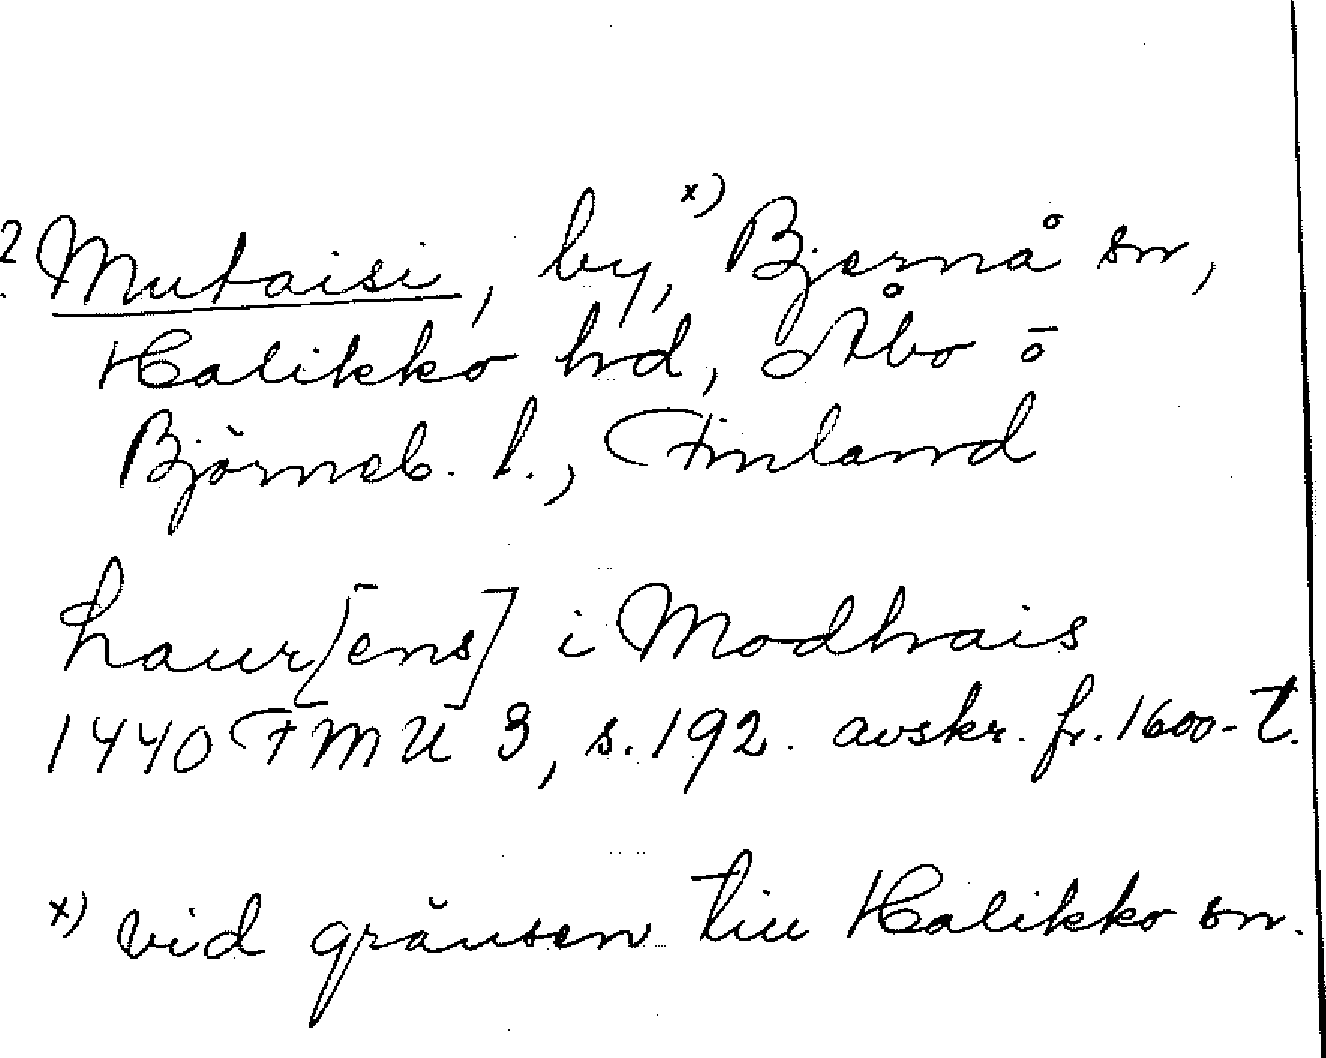 ? Mutaisi, by, x) Bjernå sn,
Halikko hd, Åbo o
Björneb. l., Finland
Laur[ens] i Modhais
1440 FMU 3, s. 192. avskr. fr. 1600-t.
x) vid gränsen till Halikko sn.